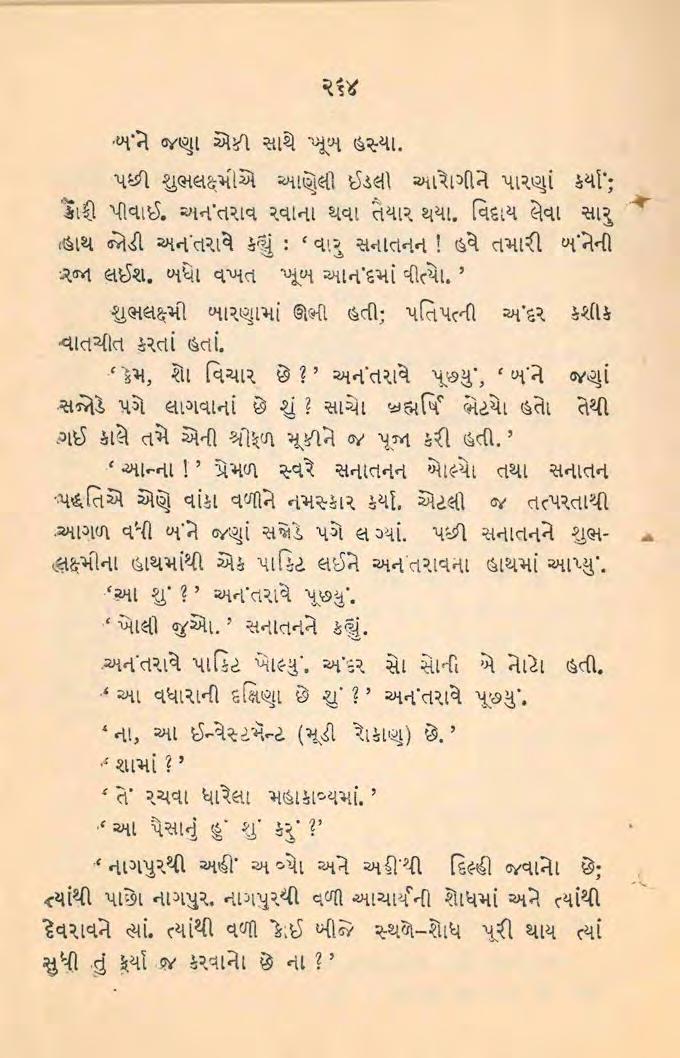 ૨૬૪
બંને જણા એકી સાથે ખૂબ હસ્યા.
પછી શુભલક્ષ્મીએ આણેલી ઈડલી આરોગીને પારણાં કર્યાં;
કૉફી પીવાઈ. અનંતરાવ રવાના થવા તૈયાર થયા. વિદાય લેવા સારુ
હાથ જોડી અનંતરાવે કહ્યું : ‘ વારુ સનાતનન ! હવે તમારી બંનેની
રજા લઈશ. બધો વખત ખૂબ આનંદમાં વીત્યો. ’
શુભલક્ષ્મી બારણામાં ઊભી હતી; પતિપત્ની અંદર કશીક
વાતચીત કરતાં હતાં.
‘ કેમ, શો વિચાર છે ? ’ અનંતરાવે પૂછ્યું, ‘ બંને જણાં
સજોડે પગે લાગવાનાં છે શું ? સાચો બ્રહ્મર્ષિ ભેટ્યો હતો તેથી
ગઈ કાલે તમે એની શ્રીફળ મૂકીને જ પૂજા કરી હતી. ’
‘ આન્ના ! ’ પ્રેમળ સ્વરે સનાતનન બોલ્યો તથા સનાતન
પદ્ધતિએ એણે વાંકા વળીને નમસ્કાર કર્યા. એટલી જ તત્પરતાથી
આગળ વધી બંને જણાં સજોડે પગે લાગ્યાં. પછી સનાતનને શુભ-
લક્ષ્મીના હાથમાંથી એક પાકિટ લઈને અનંતરાવના હાથમાં આપ્યું.
‘આ શું ? ’ અનંતરાવે પૂછ્યું.
‘ ખોલી જુઓ. ’ સનાતનને કહ્યું.
અનંતરાવે પાકિટ ખોલ્યું. અંદર સો સોની બે નોટો હતી.
‘ આ વધારાની દક્ષિણા છે શું ? ’ અનંતરાવે પૂછ્યું.
‘ ના, આ ઈન્વેસ્ટમૅન્ટ (મૂડી રોકાણ) છે. ’
‘ શામાં ? ’
‘ તેં રચવા ધારેલા મહાકાવ્યમાં. ’
‘ આ પૈસાનું હું શું કરું ?’
‘ નાગપુરથી અહીં આવ્યો અને અહીંથી દિલ્હી જવાનો છે;
ત્યાંથી પાછો નાગપુર. નાગપુરથી વળી આચાર્યની શોધમાં અને ત્યાંથી
દેવરાવને ત્યાં. ત્યાંથી વળી કોઈ બીજે સ્થળે–શોધ પૂરી થાય ત્યાં
સુધી તું ફર્યા જ કરવાનો છે ના ? ’